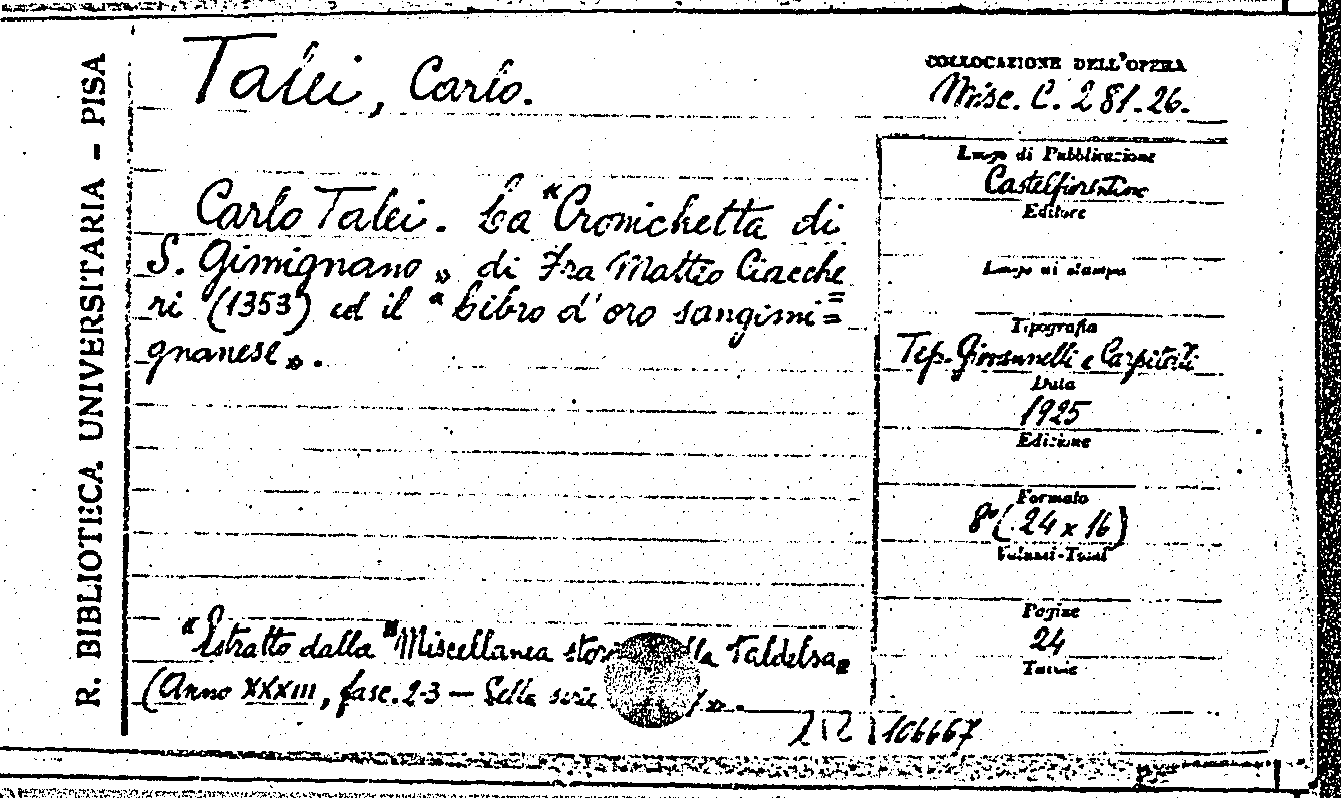 R. BIBLIOTECA UNIVERSITARIA - PISA
Talei, Carlo.
COLLOCAZIONE DELL'OPERA
Misc. C. 281.26.
Carlo Talei. La "Cronichetta di
S. Gimignano„ di Fra Matteo Ciacche
ri (1353) ed il "Libro d'oro sangimi=
gnanese„.
"Estratto dalla "Miscellanea della Valdelsa„
(Anno XXXIII, fasc. 2-3 — Della serie „.
Luogo di Pubblicazione
Castelfiorentino
Editore
Luogo di stampa
Tipografia
Tip. Giovannelli e Carpitelli
Data
1925
Edizione
Formato
8° (24 x 16)
Volumi-Tomi
Pagine
24
Tavole
106667